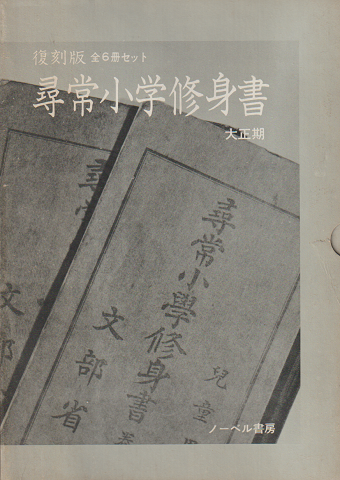 復刻版 全6冊セット
尋常小学修身書
大正期
尋常
文部
尋常小學修身書
兒童用
文部省
巻
ノーベル書房